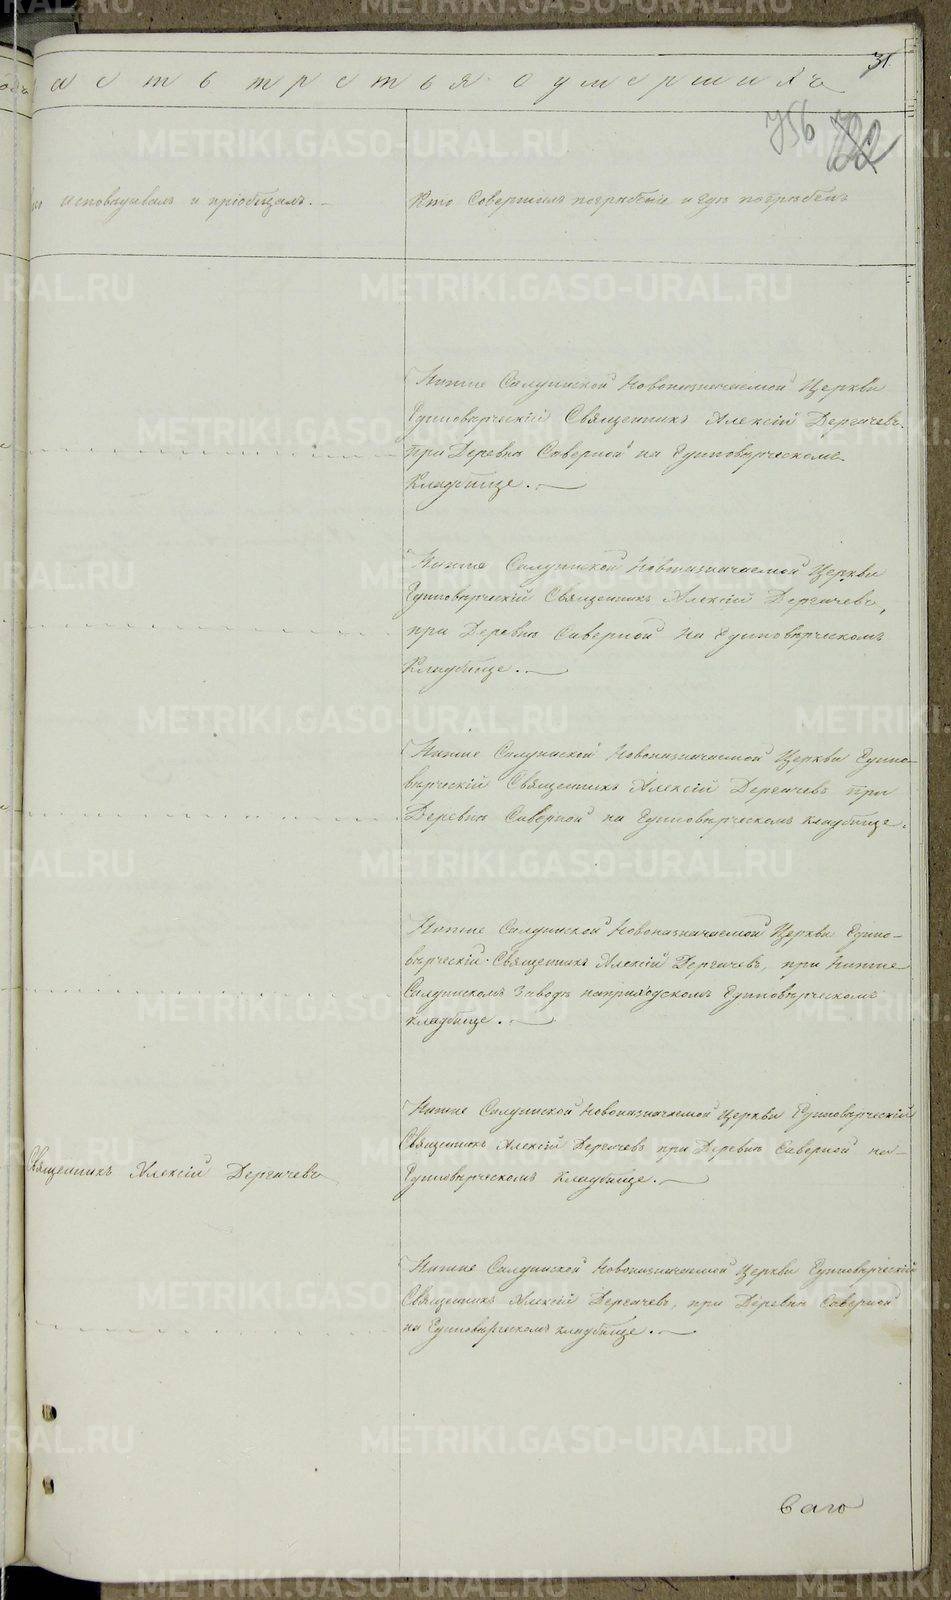 31
асть третья о умершихъ
756
исповѣдывалъ и пріобщалъ.
Кто совершилъ погребеніе и гдѣ погребенъ
Нижне Салдинской Новоназначаемой Церкви
Единовѣрческій Священникъ Алексій Дергачевъ.
при Деревнѣ Сѣверной на Единовѣрческомъ
Кладбище.
Нижне Салдинской Новоназначаемой Церкви
Единовѣрческій Священникъ Алексій Дергачевъ,
при Деревнѣ Сѣверной на Единовѣрческомъ
Кладбище.
Нижне Салдинской Новоназначаемой Церкви Едино-
вѣрческій Священникъ Алексій Дергачевъ при
Деревнѣ Сѣверной на Единовѣрческомъ кладбище.
Нижне Салдинской Новоназначаемой Церкви Едино-
вѣрческій Священникъ Алексій Дергачевъ, при Нижне
Салдинскомъ Заводѣ наприходскомъ Единовѣрческомъ
кладбище.
Нижне Салдинской Новоназначаемой Церкви Единовѣрческій
Священникъ Алексій Дергачевъ при Деревнѣ Сѣверной на
Единовѣрческомъ кладбище.
Священникъ Алексій Дергачевъ
Нижне Салдинской Новоназначаемой Церкви Единовѣрческій
Священникъ Алексій Дергачевъ, при Деревнѣ Сѣверной
на Единовѣрческомъ кладбище.
6 аго